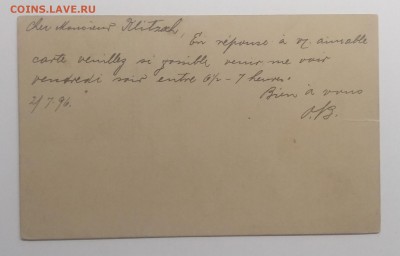 COINS.LAVE.RU
Cher Monsieur
En réponse à v. aimable
carte veuillez si possible venir me voir
vendredi soir entre 6½ - 7 heures.
Bien à vous
2/7.96.